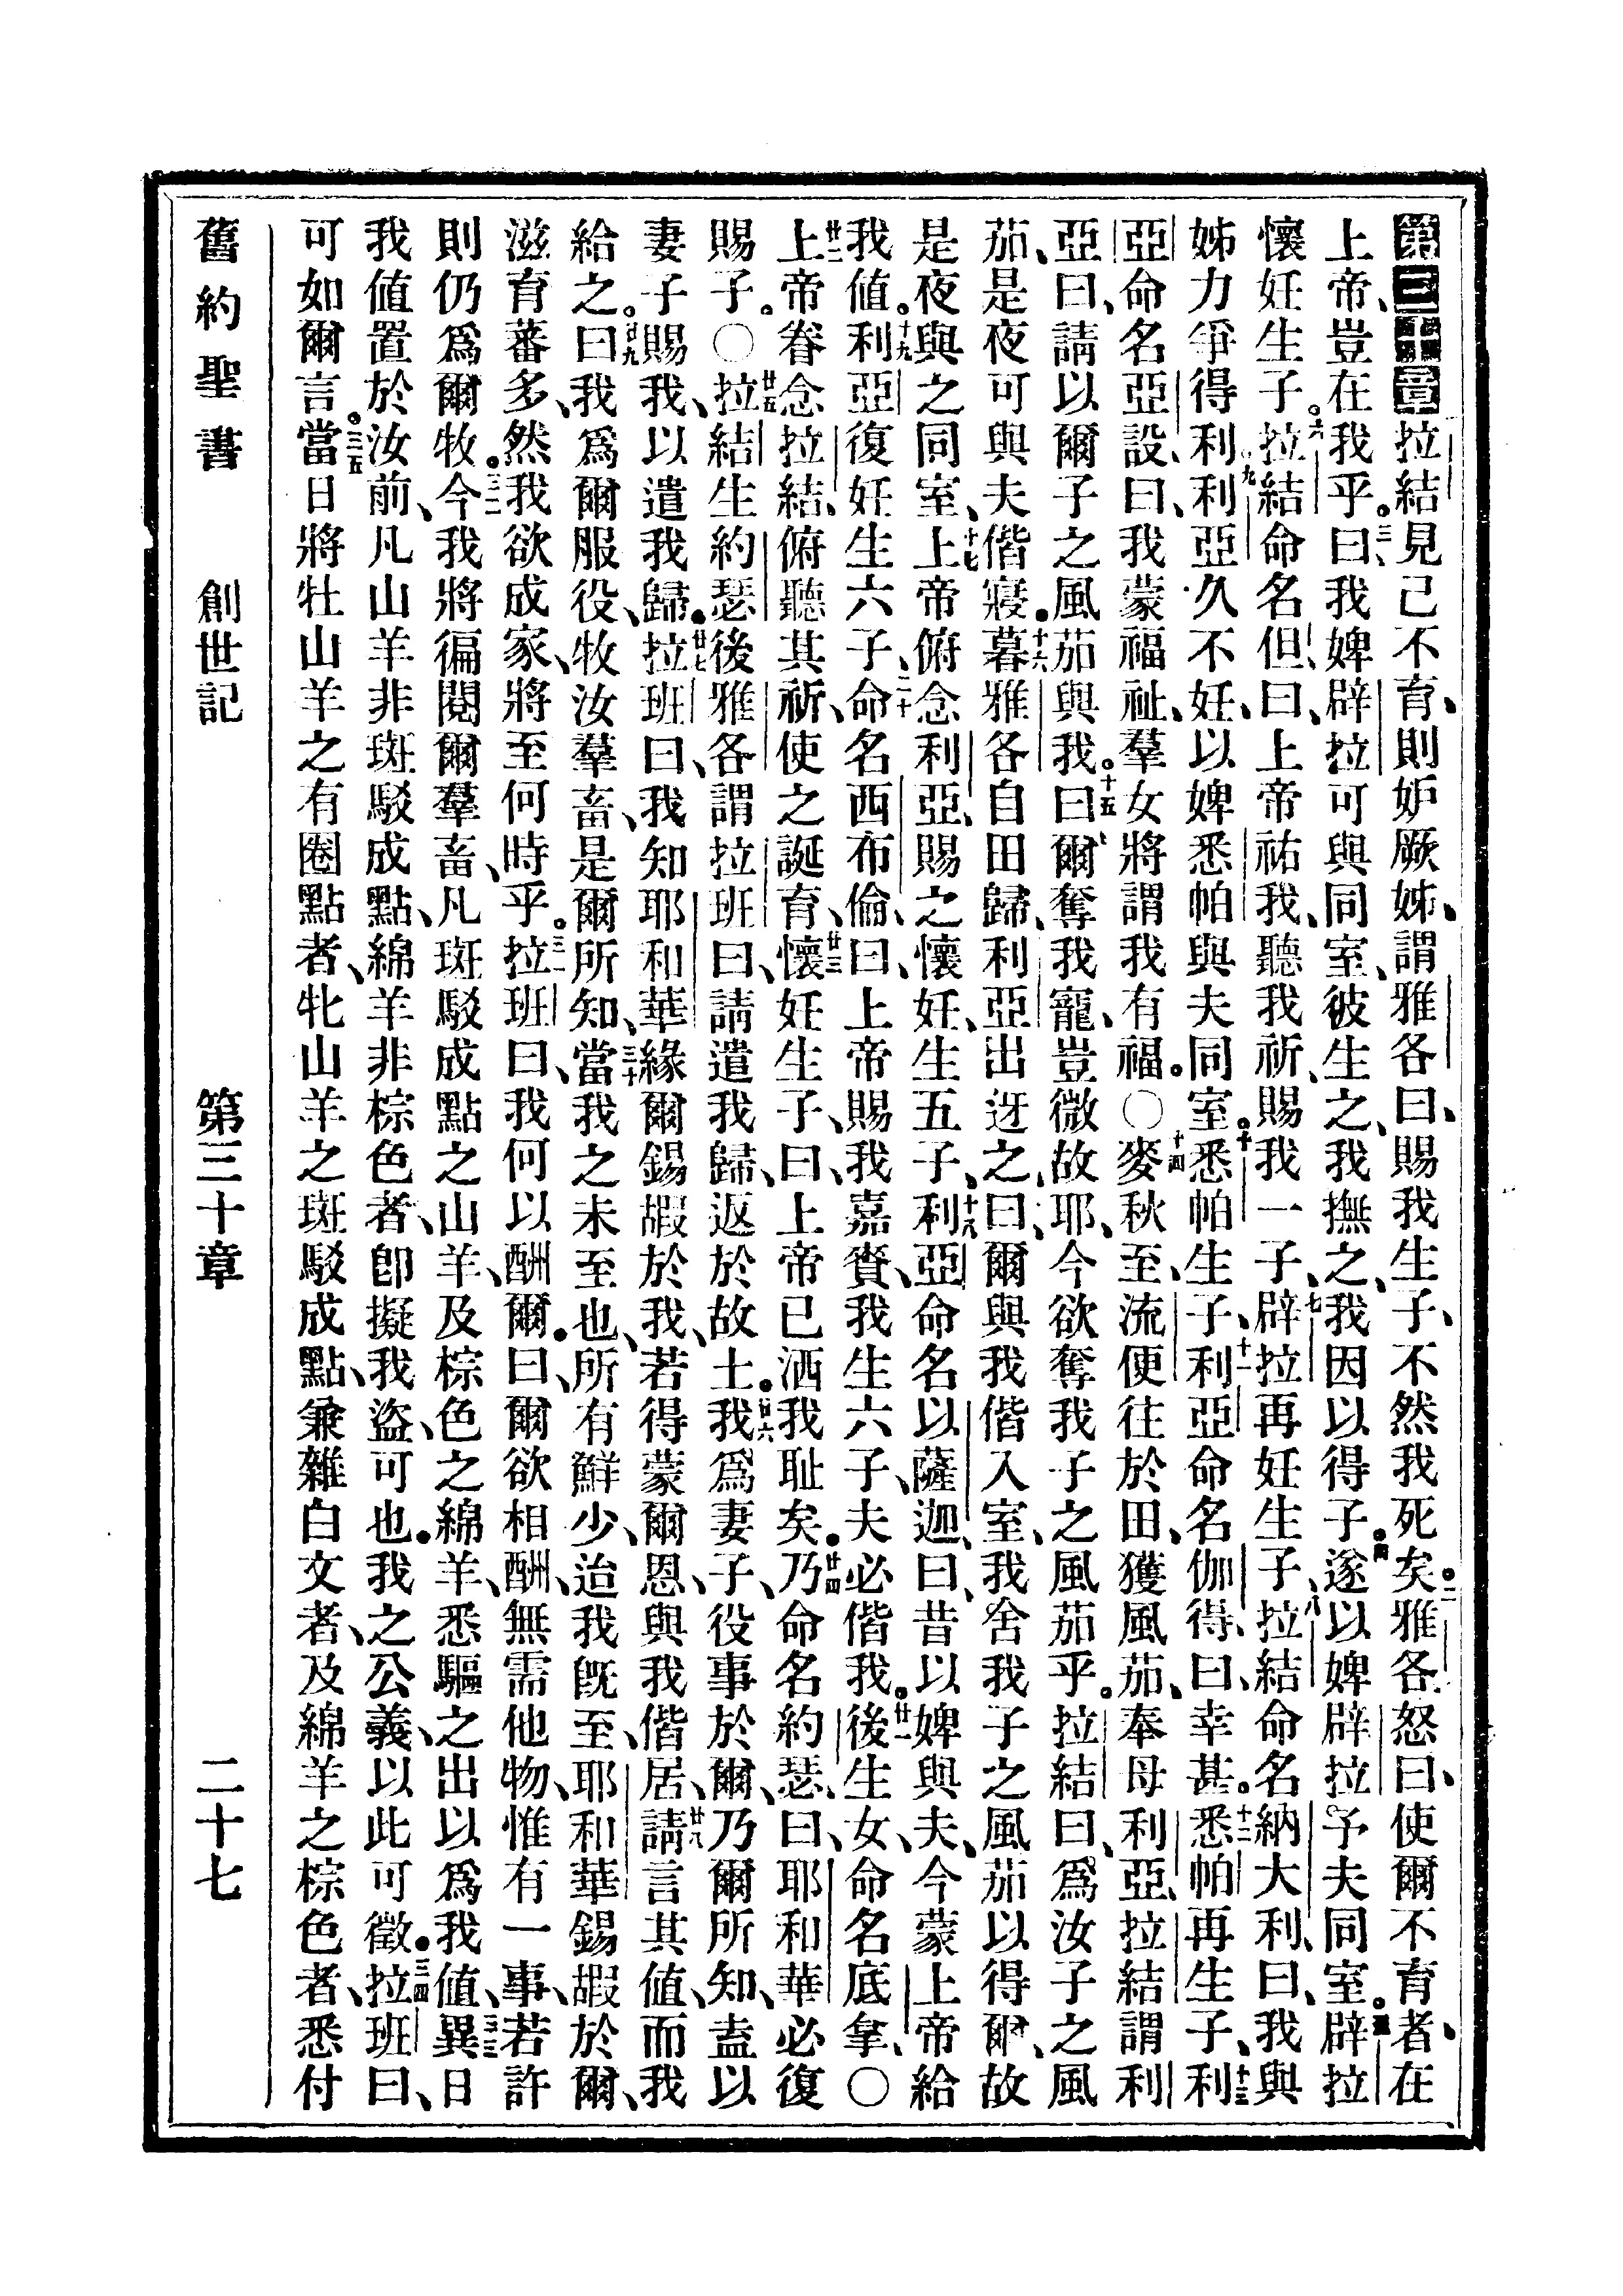 第三十章拉結見己不育、則妒厥姊、謂雅各曰、賜我生子、不然我死矣。二雅各怒曰、使爾不育者、在
上帝、豈在我乎。三曰、我婢辟拉可與同室、彼生之、我撫之、我因以得子。四遂以婢辟拉予夫同室。五辟拉
懷妊生子。六拉結命名但、曰、上帝祐我、聽我祈、賜我一子、七辟拉再妊生子、八拉結命名納大利、曰、我與
姊力爭得利。九利亞久不妊、以婢悉帕與夫同室。十悉帕生子、十一利亞命名伽得、曰、幸甚。十二悉帕再生子、十三利
亞命名亞設、曰、我蒙福祉、羣女將謂我有福。〇十四麥秋至、流便往於田、獲風茄、奉母利亞、拉結謂利
亞曰、請以爾子之風茄與我。十五曰、爾奪我寵、豈微故耶、今欲奪我子之風茄乎。拉結曰、爲汝子之風
茄、是夜可與夫偕寢。十六暮、雅各自田歸、利亞出迓之、曰、爾與我偕入室、我舍我子之風茄以得爾、故
是夜與之同室、十七上帝俯念利亞、賜之懷妊、生五子、十八利亞命名以薩迦、曰、昔以婢與夫、今蒙上帝給
我值。十九利亞復妊生六子、二十命名西布倫、曰、上帝賜我嘉賚、我生六子、夫必偕我。廿一後生女、命名底拿、〇
廿二上帝眷念拉結、俯聽其祈、使之誕育、廿三懷妊生子、曰、上帝已洒我耻矣。廿四乃命名約瑟、曰、耶和華必復
賜子。〇廿五拉結生約瑟後、雅各謂拉班曰、請遣我歸、返於故土。廿六我爲妻子、役事於爾、乃爾所知、盍以
妻子賜我、以遣我歸。廿七拉班曰、我知耶和華緣爾錫嘏於我、若得蒙爾恩、與我偕居、廿八請言其值、而我
給之。廿九曰、我爲爾服役、牧汝羣畜、是爾所知、三十當我之未至也、所有鮮少、迨我旣至、耶和華錫嘏於爾、
滋育蕃多、然我欲成家、將至何時乎。三一拉班曰、我何以酬爾。曰、爾欲相酬、無需他物、惟有一事、若許
則仍爲爾牧。三二今我將徧閱爾羣畜、凡斑駁成點之山羊、及棕色之綿羊、悉驅之出、以爲我值、三三異日
我值置於汝前、凡山羊非斑駁成點、綿羊非棕色者、卽擬我盜、可也。我之公義、以此可徵。三四拉班曰、
可如爾言。三五當日將牡山羊之有圈點者、牝山羊之斑駁成點、兼雜白文者、及綿羊之棕色者、悉付
舊約聖書　創世記　第三十章　二十七